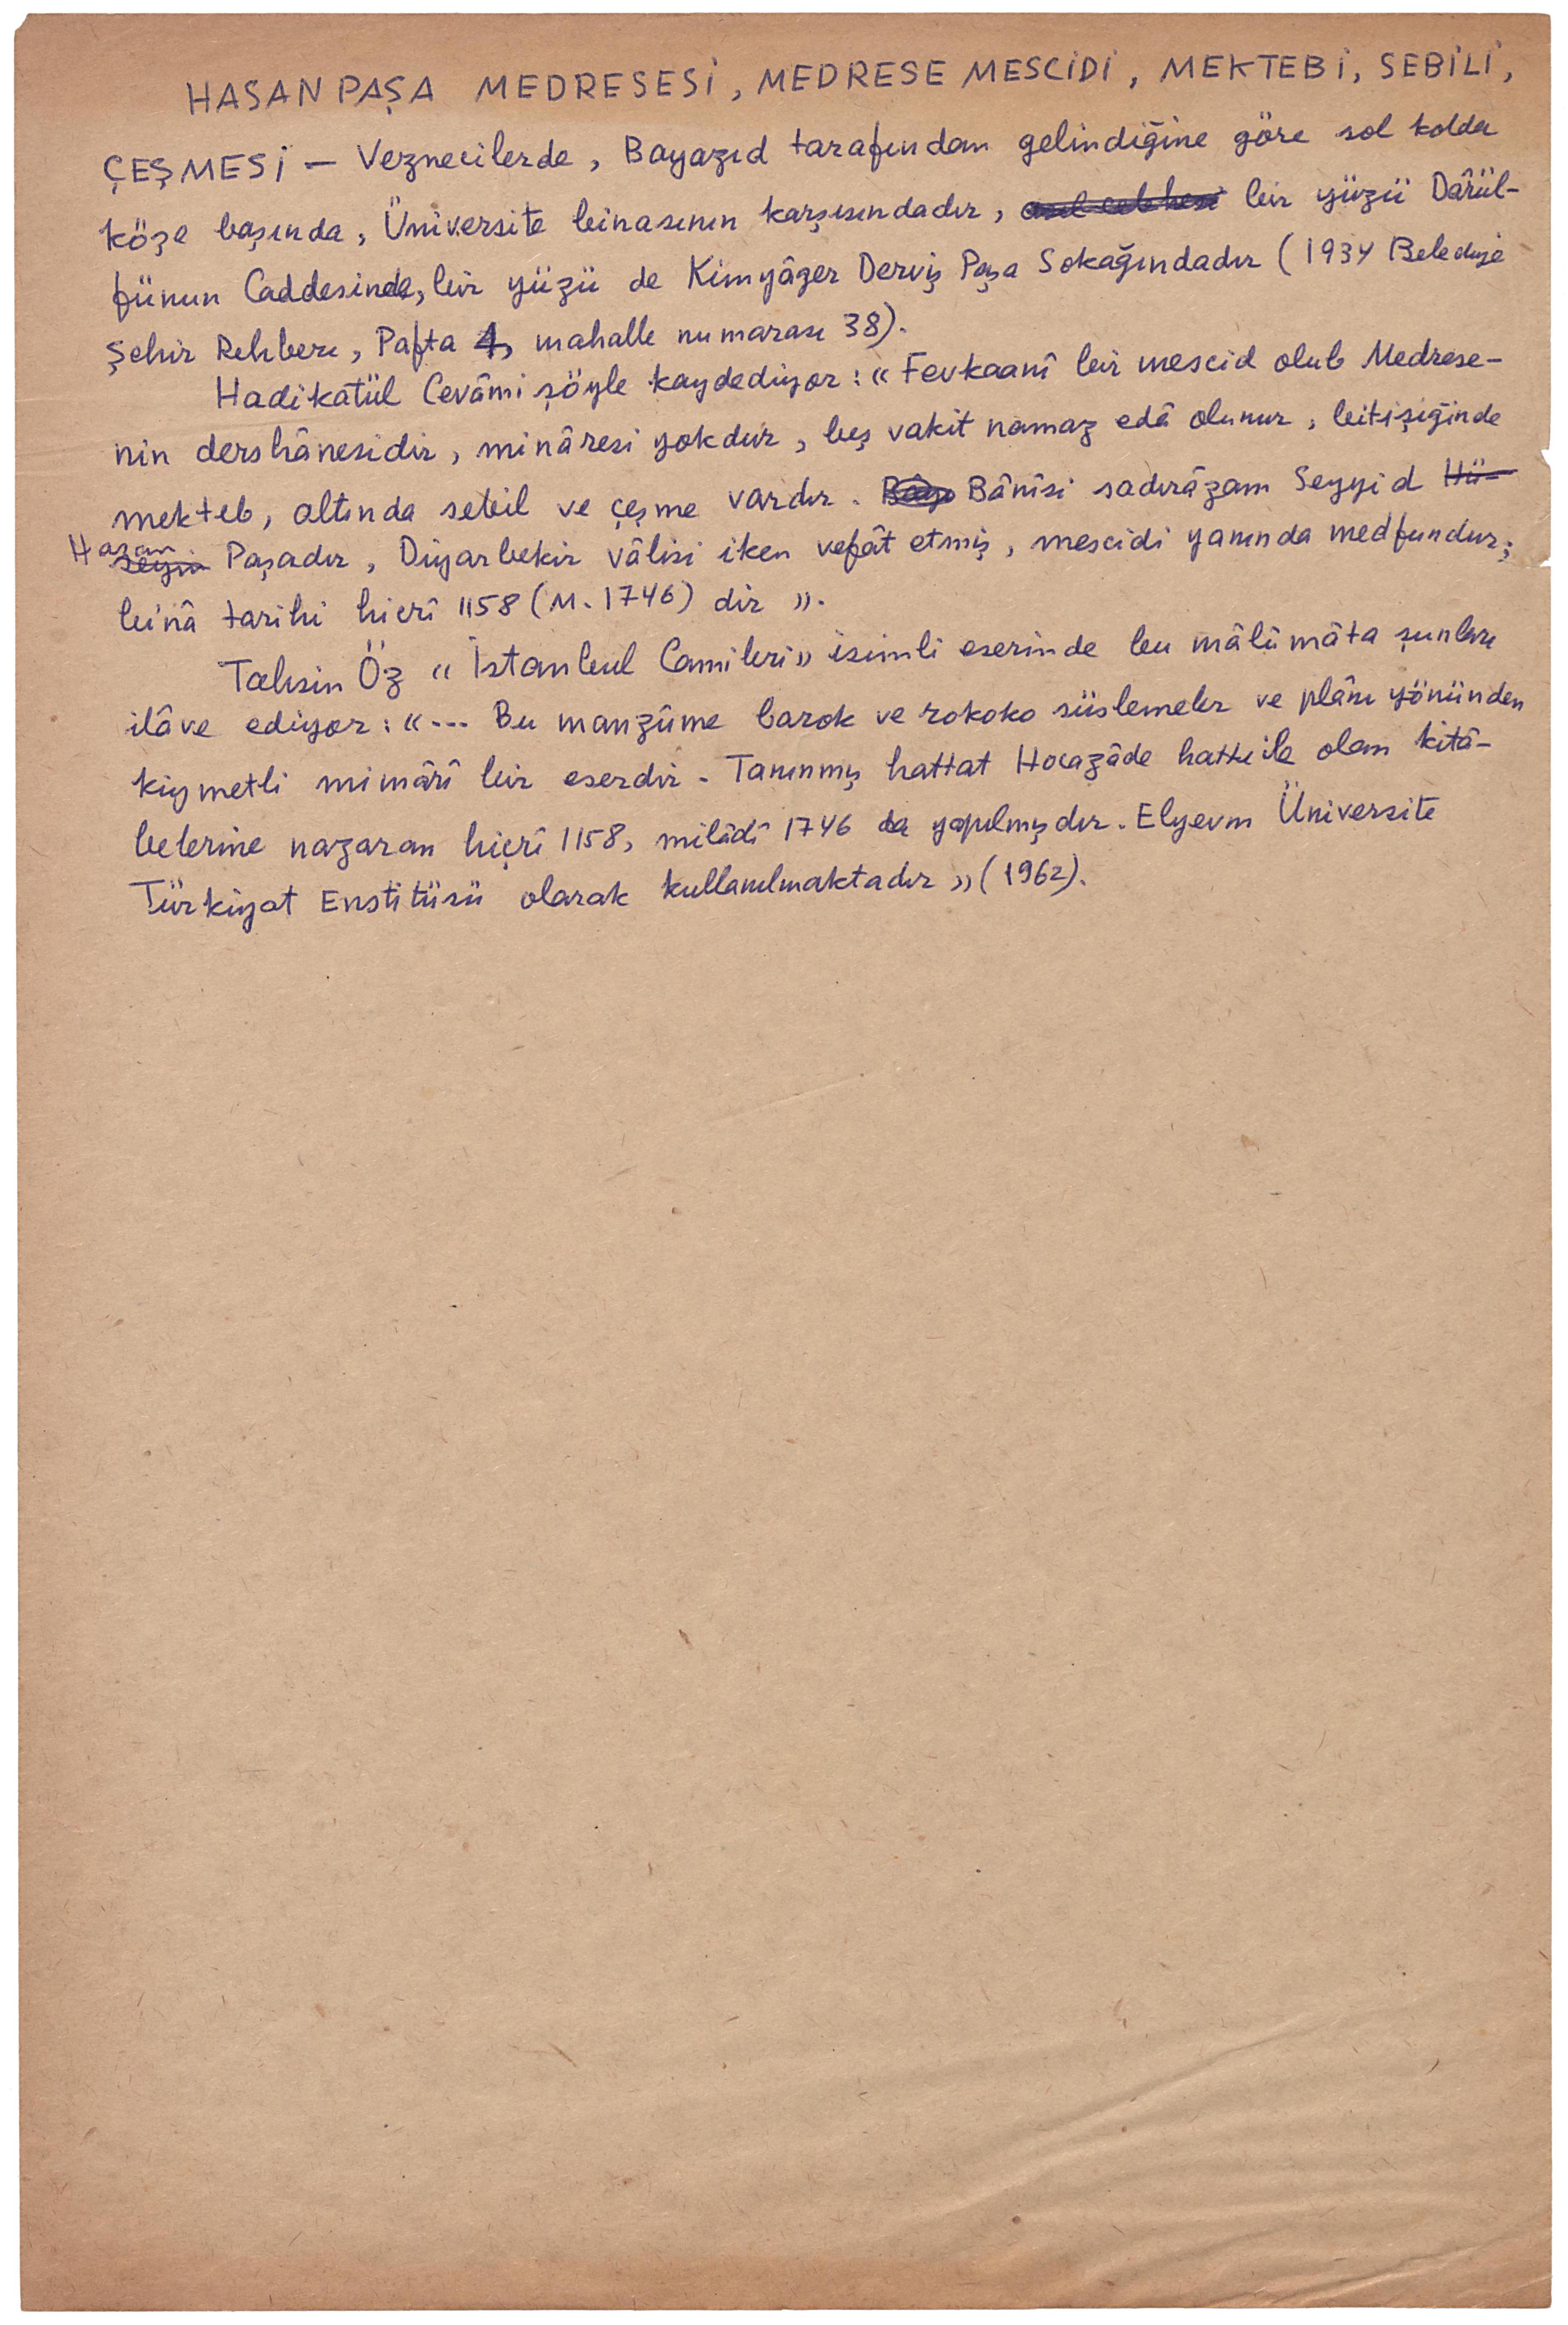 HASAN PAŞA MEDRESESİ, MEDRESE MESCİDİ, MEKTEBİ, SEBİLİ,
ÇEŞMESİ — Veznecilerde, Bayazıd tarafından gelindiğine göre sol kolda
köşe başında, Üniversite binasının karşısındadır, asıl cebhesi bir yüzü Dârül-
fünun Caddesinde, bir yüzü de Kimyâger Derviş Paşa Sokağındadır (1934 Belediye
Şehir Rehberi, Pafta 4, mahalle numarası 38).
Hadikatül Cevâmi şöyle kaydediyor: « Fevkaanî bir mescid olub Medrese-
nin dershânesidir, minâresi yokdur, beş vakit namaz edâ olunur, bitişiğinde
mekteb, altında sebil ve çeşme vardır. Bânîsi sadırâzam Seyyid Hü-
Hasan
seyin Paşadır, Diyarbekir vâlisi iken vefât etmiş, mescidi yanında medfundur;
binâ tarihi hicrî 1158 (M. 1746) dir ».
Tahsin Öz « İstanbul Camileri » isimli eserinde bu mâlûmâta şunları
ilâve ediyor: «... Bu manzûme barok ve rokoko süslemeler ve plânı yönünden
kıymetli mimârî bir eserdir. Tanınmış hattat Hocazâde hattı ile olan kitâ-
belerine nazaran hicrî 1158, milâdî 1746 da yapılmışdır. Elyevm Üniversite
Türkiyat Enstitüsü olarak kullanılmaktadır » (1962).